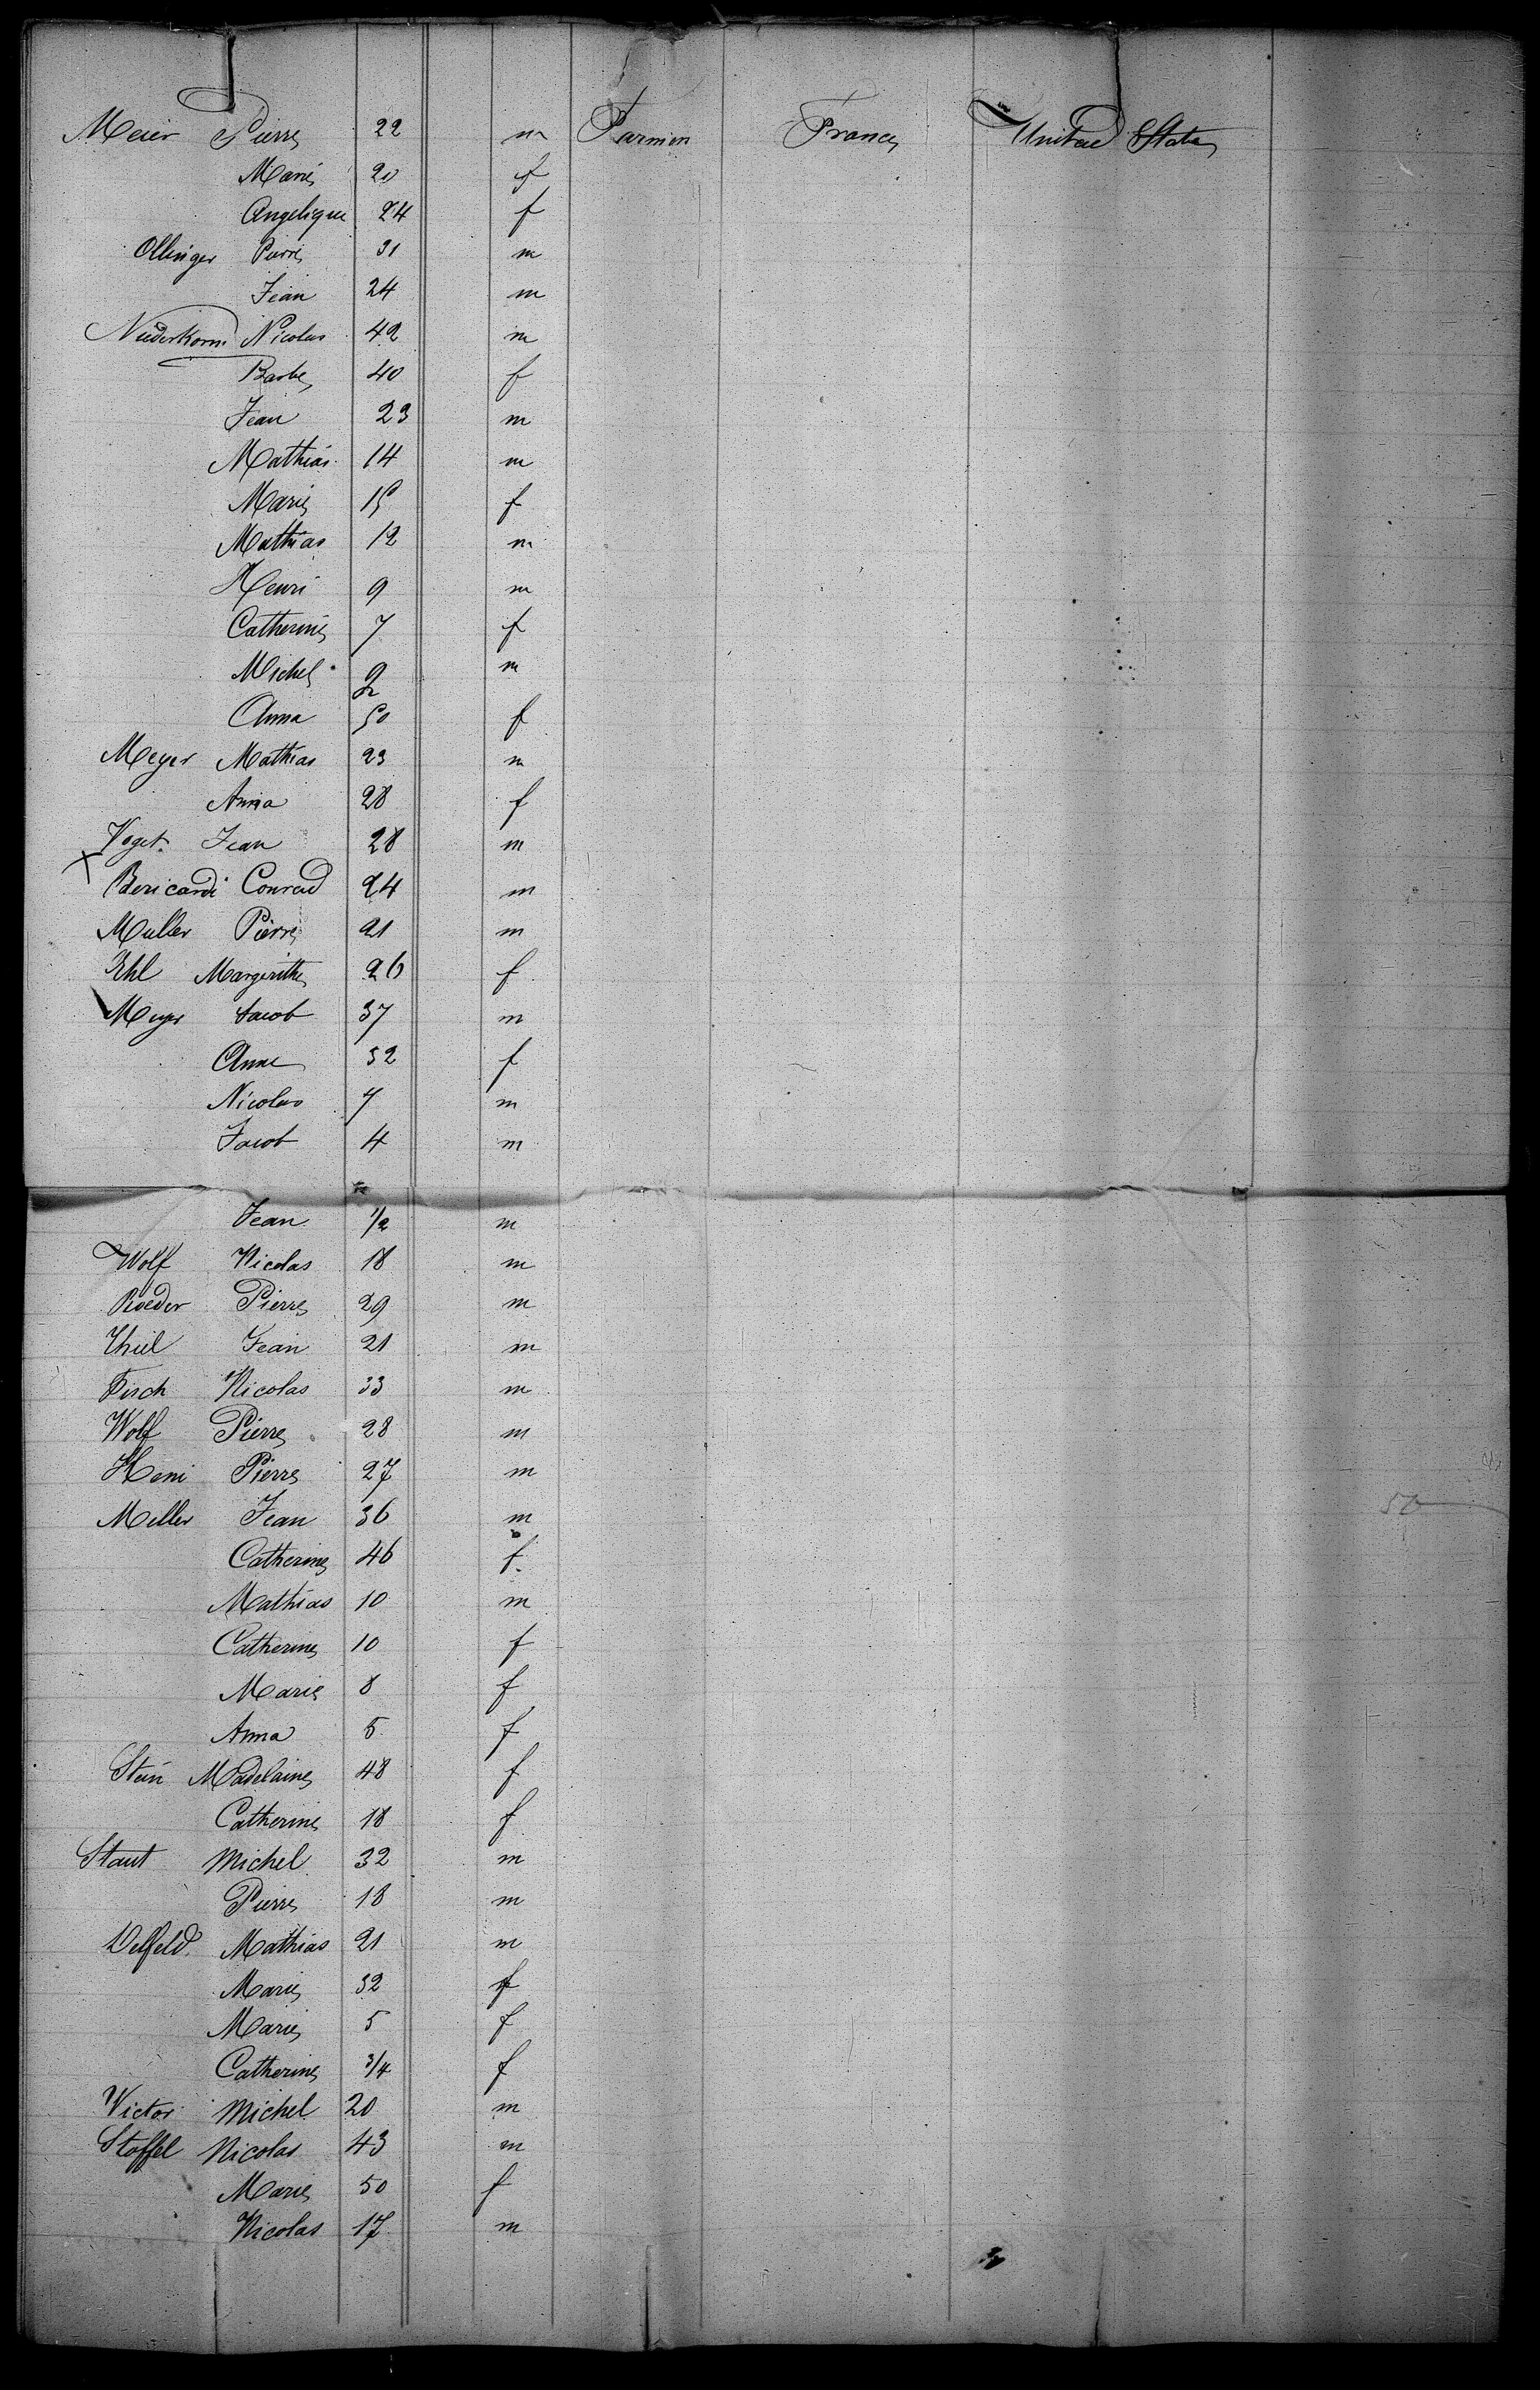 Meier Pierre 22 m Farmer France United States
Marie 20 f
Angelique 24 f
Ollinger Pierre 31 m
Jean 24 m
Niederkorn Nicolas 42 m
Barbe 40 f
Jean 23 m
Mathias 14 m
Marie 15 f
Mathias 12 m
Henri 9 m
Catherine 7 f
Michel m
Anna 50 f
Meyer Mathias 23 m
Anna 28 f
Voget Jean 28 m
X Bericardi Conrad 24 m
Muller Pierre 21 m
Ehl Margerithe 26 f
Meyer Jacob 37 m
Anne 32 f
Nicolas 7 m
Jacob 4 m
Jean 1/2 m
Wolf Nicolas 18 m
Roeder Pierre 29 m
Thiel Jean 21 m
Fisch Nicolas 33 m
Wolf Pierre 28 m
Heni Pierre 27 m
Meller Jean 36 m 50
Catherine 46 f
Mathias 10 m
Catherine 10 f
Marie 8 f
Anna 5 f
Stein Madelaine 48 f
Catherine 18 f
Staut Michel 32 m
Pierre 18 m
Delfeld Mathias 21 m
Marie 32 f
Marie 5 f
Catherine 3/4 f
Victor Michel 20 m
Stoffel Nicolas 43 m
Marie 50 f
Nicolas 17 m